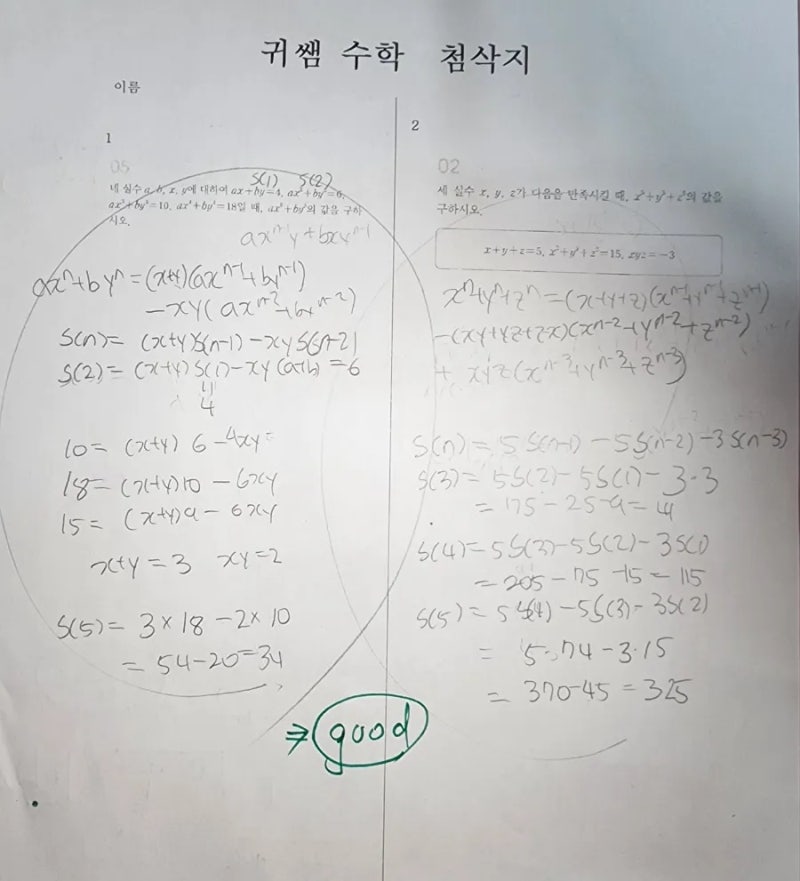 귀쌤 수학 첨삭지
이름
1
05
S(1) S(2)
네 실수 a, b, x, y에 대하여 ax+by=4, ax²+by²=6,
ax³+by³=10, ax⁴+by⁴=18일 때, ax⁵+by⁵의 값을 구하
시오.
axⁿ⁻¹y+bxyⁿ⁻¹
axⁿ+byⁿ=(x+y)(axⁿ⁻¹+byⁿ⁻¹)
-xy(axⁿ⁻²+byⁿ⁻²)
S(n)= (x+y)S(n-1) -xyS(n-2)
S(2)= (x+y)S(1)-xy(a+b) =6
4
10= (x+y) 6 -4xy
18= (x+y)10 - 6xy
15= (x+y)9 - 6xy
x+y=3 xy=2
S(5)= 3×18 -2×10
= 54-20=34
2
02
세 실수 x, y, z가 다음을 만족시킬 때, x⁵+y⁵+z⁵의 값을
구하시오.
x+y+z=5, x²+y²+z²=15, xyz=-3
xⁿ+yⁿ+zⁿ=(x+y+z)(xⁿ⁻¹+yⁿ⁻¹+zⁿ⁻¹)
-(xy+yz+zx)(xⁿ⁻²+yⁿ⁻²+zⁿ⁻²)
+ xyz(xⁿ⁻³+yⁿ⁻³+zⁿ⁻³)
S(n)= 5 S(n-1) -5S(n-2)-3S(n-3)
S(3)= 5S(2)-5S(1)-3·3
= 175-25-9=41
S(4)=5S(3)-5S(2)-3S(1)
= 205-75-15=115
S(5)= 5S(4)-5S(3)-3S(2)
= 5·74-3·15
= 370-45=325
⇒ good